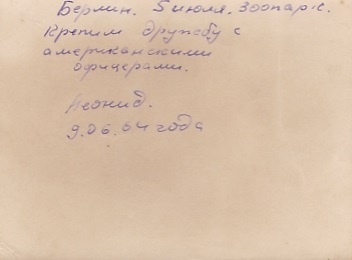 Берлин. 5 июля. Зоопарк.
Крепим дружбу с
американскими
офицерами.
Леонид.
9.06.04 года